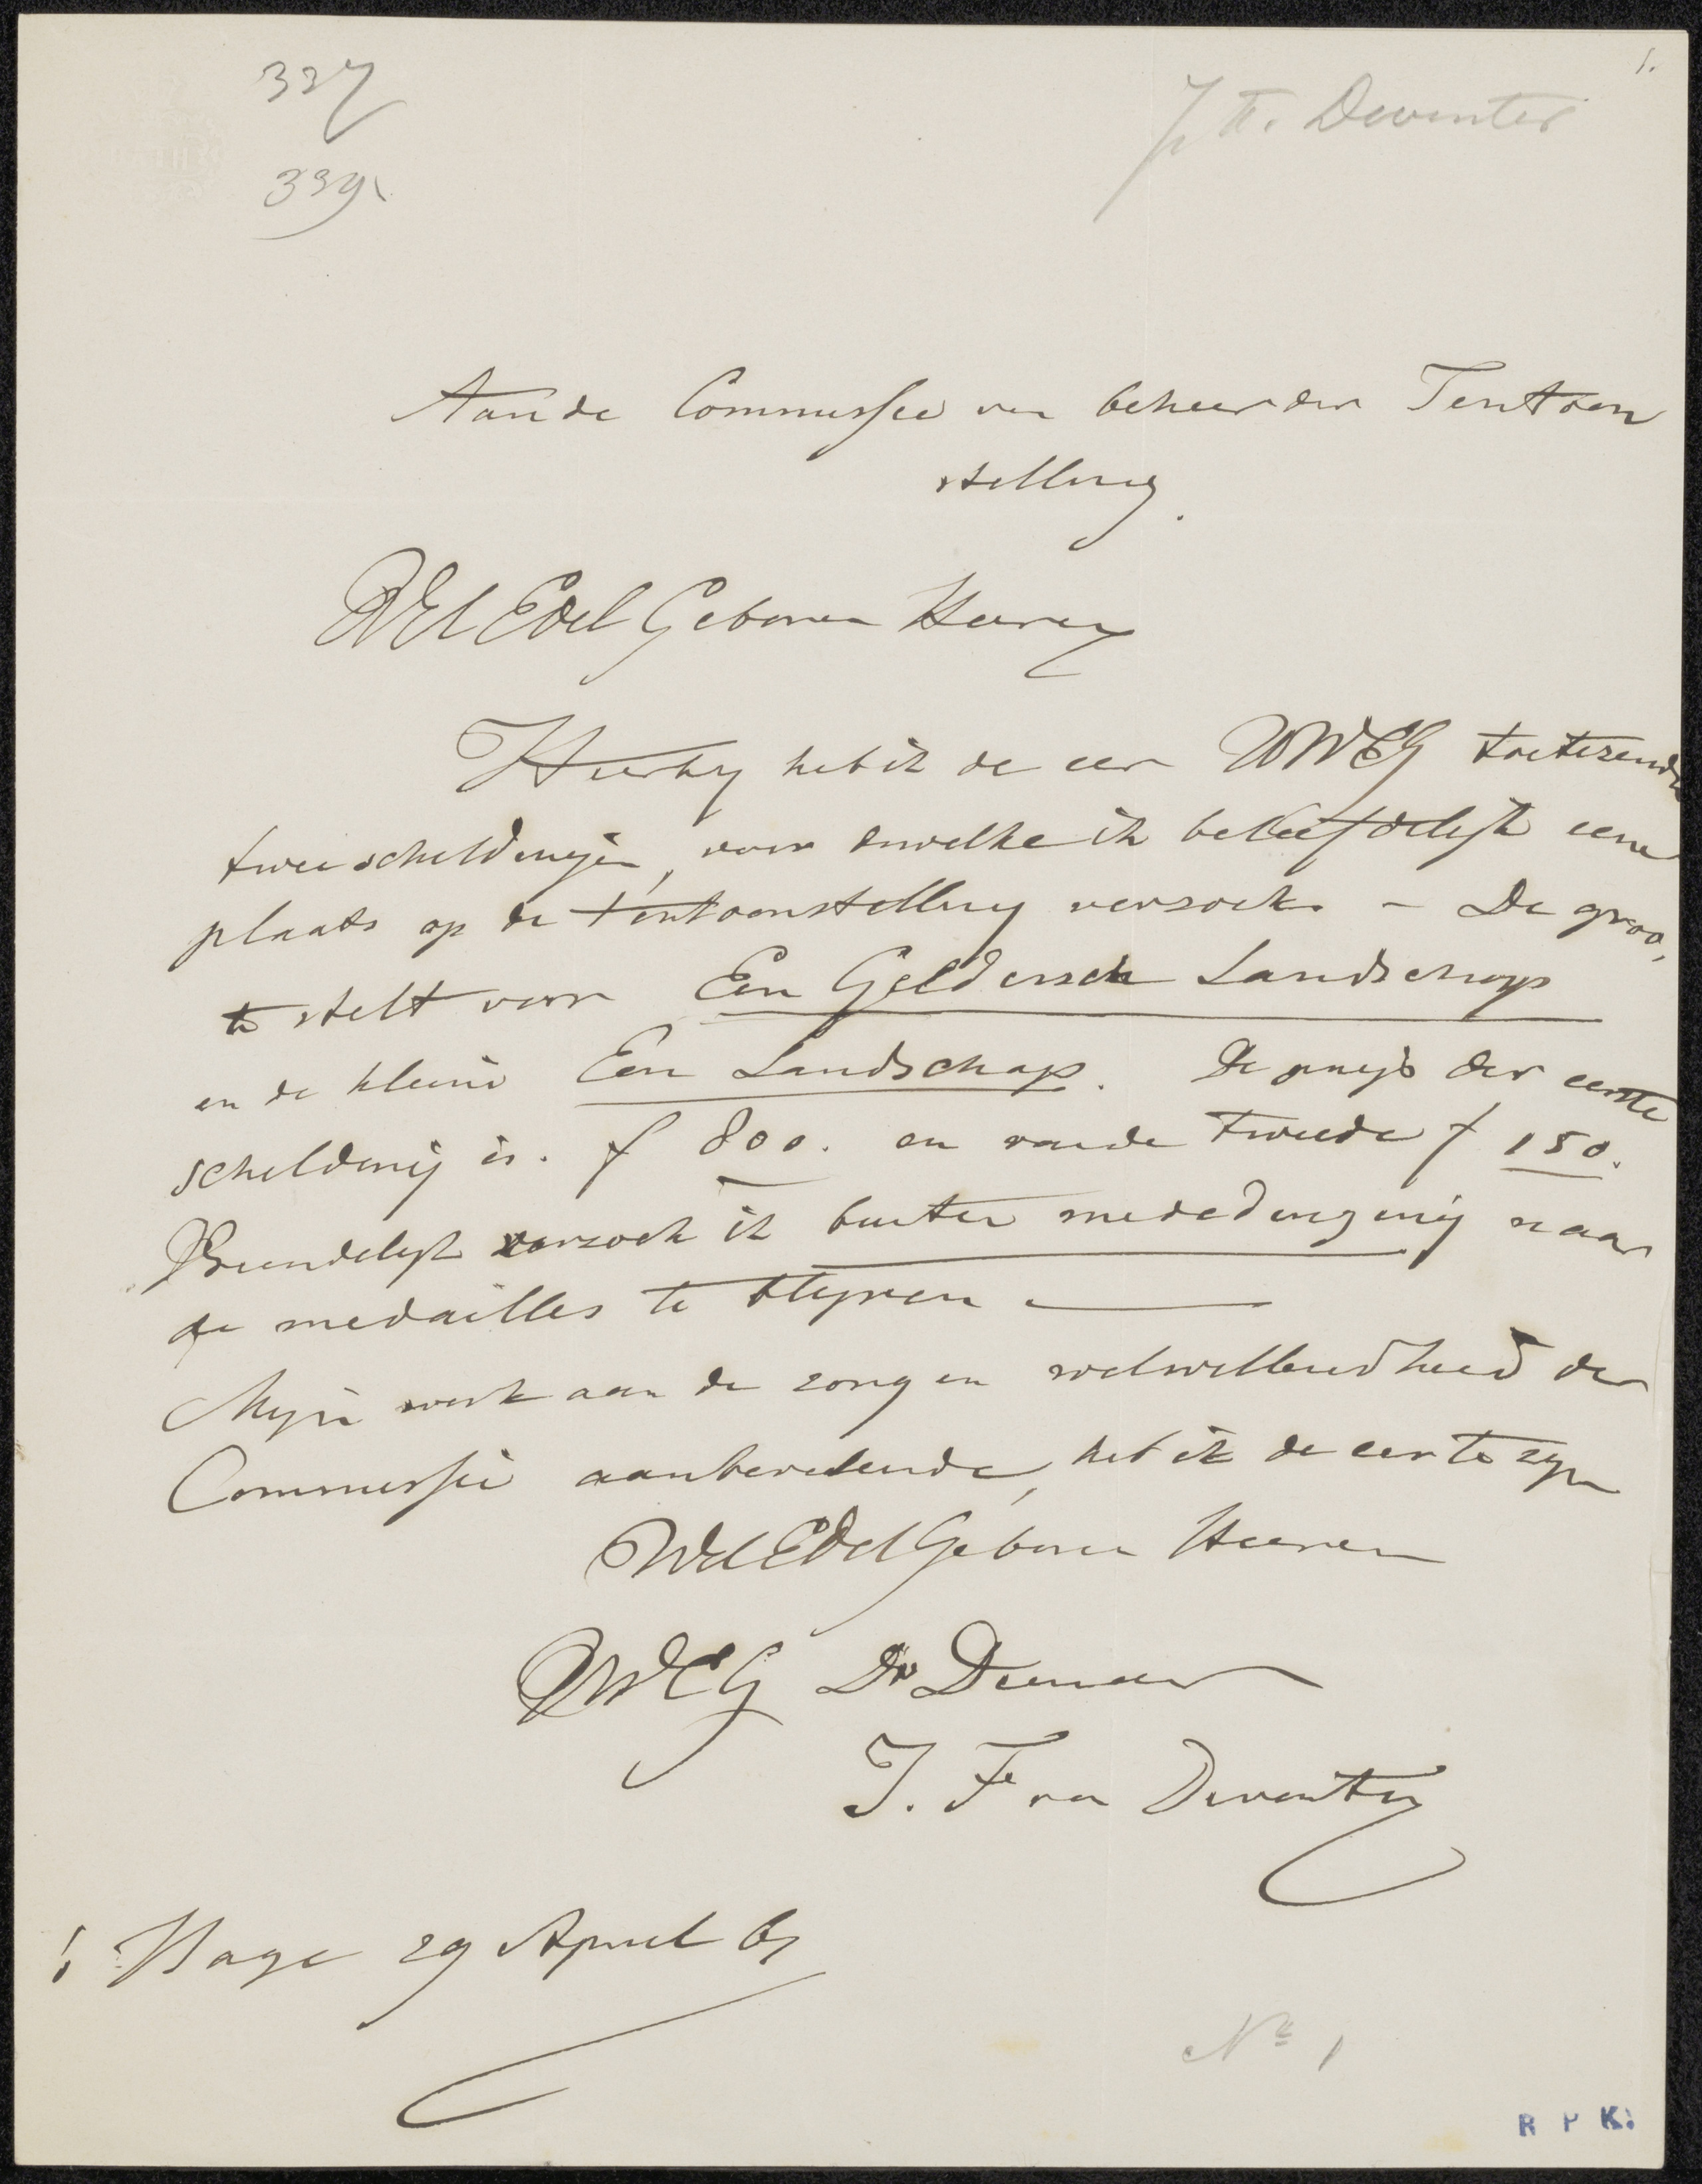 337
339
1.
Deventer
Aan de Commissie van beheer der Tentoon
stelling.
WelEdelGeboren Heeren
Hierby heb ik de eer UWEG toetezenden
twee schilderijen, voor dewelke ik beleefdelijk eene
plaats op de tentoonstelling verzoek. – De groo,
te stelt voor Een Geldersch Landschap
en de kleine Een Landschap. De prijs der eerste
schilderij is. f 800. en van de tweede f 150.
Vriendelijk verzoek ik buiten mededinging naar
de medailles te blyven —
Myn werk aan de zorg en welwillendheid der
Commissie aanbevelende, heb ik de eer te zyn
WelEdelGeboren Heeren
UWEG Dw Dienaar
J. F van Deventer
's Hage 29 April 67
No 1
R P K.